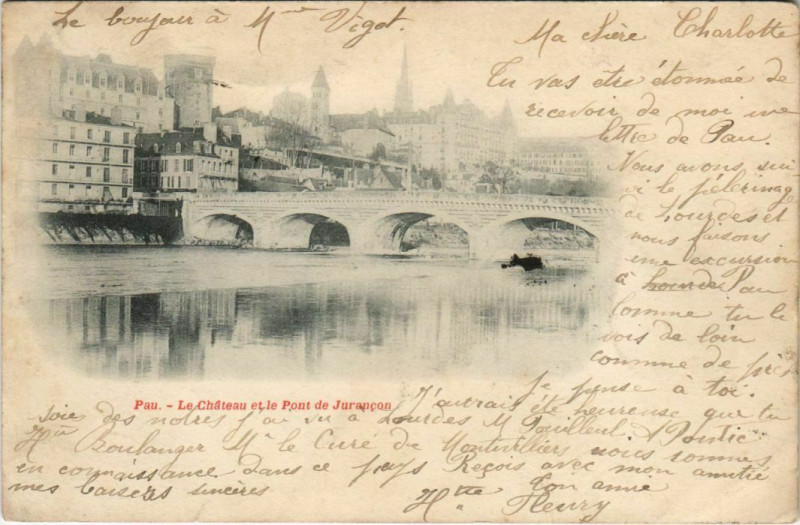 Le bonjour à Mme Vigot.
Ma chère Charlotte
Tu vas être étonnée de
recevoir de moi une
lettre de Pau.
Nous avons sui
vi le pélerinage
de Lourdes et
nous faisons
une excursion
à Pau
Comme tu le
vois de loin
comme de près
Je pense à toi.
Pau. - Le Château et le Pont de Jurançon
J'aurais été heureuse que tu
sois des nôtres j'ai vu à Lourdes M
Boulanger Mr le Curé de Montivilliers nous sommes
en connaissance dans ce pays Reçois avec mon amitié
mes baisers sincères
Ton amie
Hte Fleury